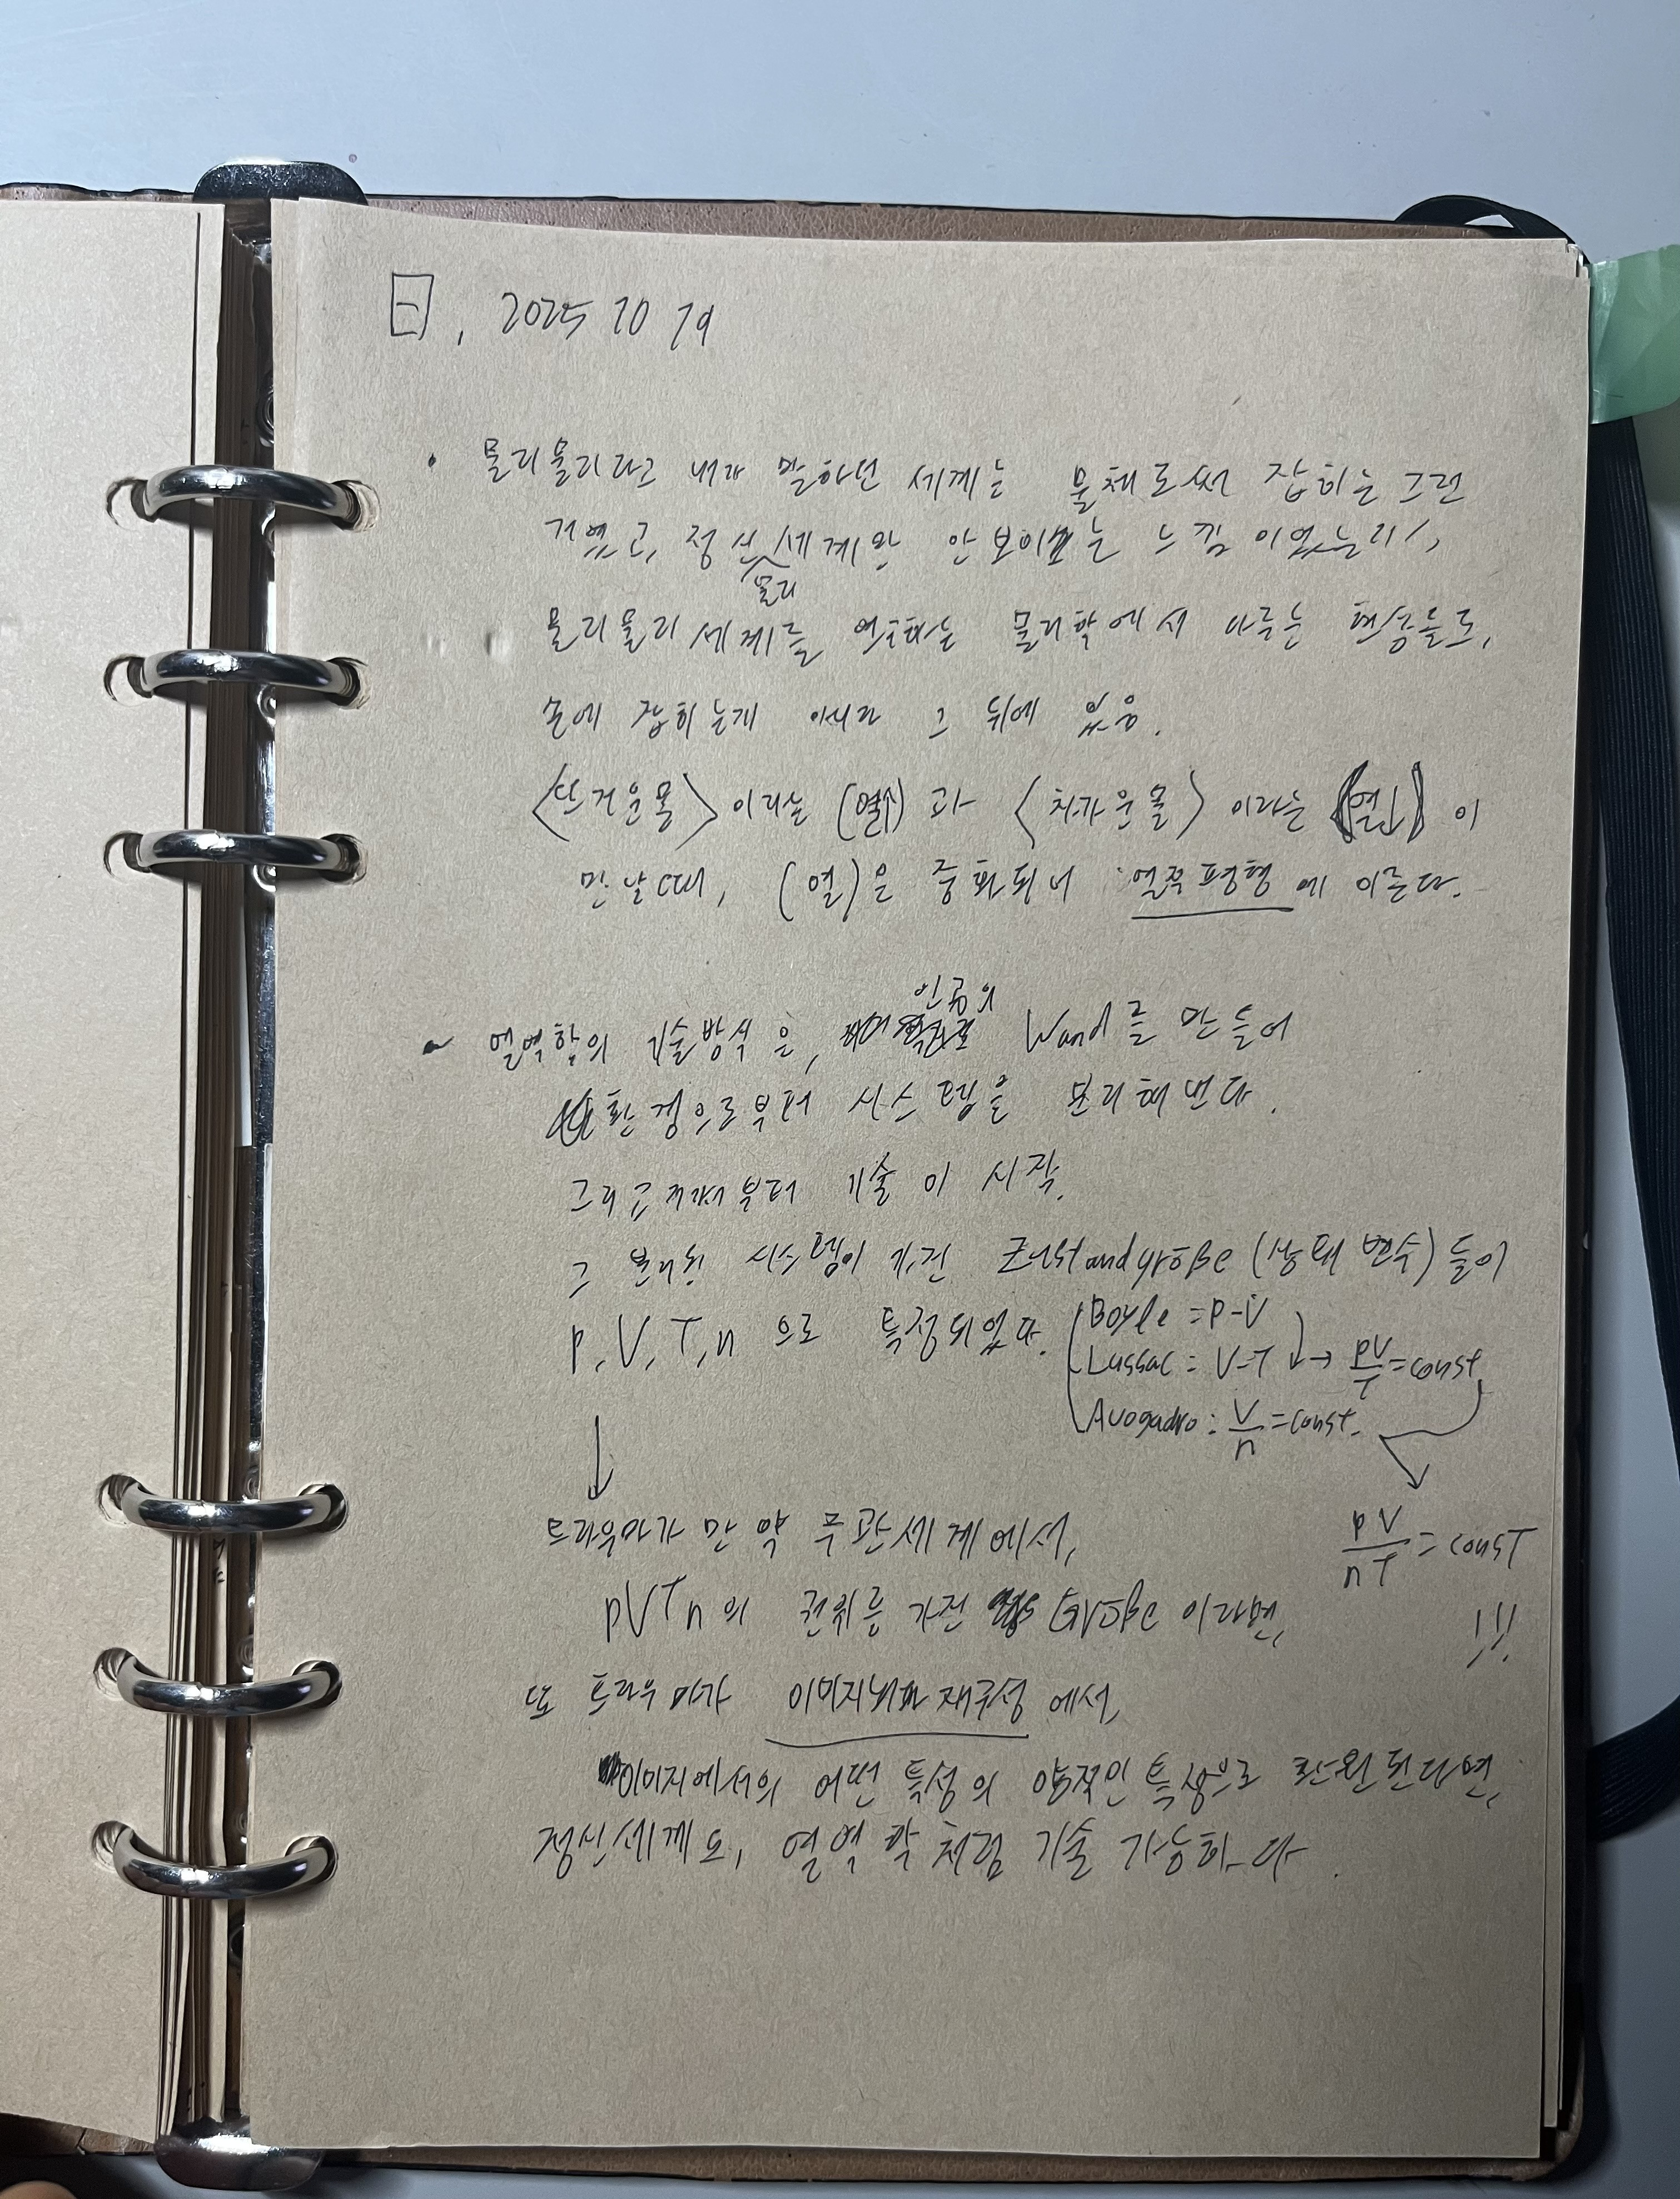 日, 2025 10 19
• 물리물리라고 내가 말하던 세계는 물체로써 잡히는 그런
거였고, 정신세계와 안보이는 느낌이었는데,
물리
물리물리세계를 연구하는 물리학에서 다루는 현상들도,
손에 잡히는게 아니라 그 뒤에 있음.
<뜨거운물>이라는 (열↑)과 <차가운물>이라는 (열↓)이
만날때, (열)은 중화되어 열쪽평형에 이른다.
인공의
• 열역학의 기술방식은, Wand를 만들어
환경으로부터 시스템을 분리해낸다.
그리고 거기서부터 기술이 시작.
그 분리된 시스템이 가진 Zustandgröße (상태 변수)들이
p, V, T, n 으로 특정되었다.
Boyle = P-V
Lussac = V-T → pV/T = const
Avogadro : V/n = const.
pV/nT = const
!!!
↓
트라우마가 만약 무관세계에서,
pVTn의 권위를 가진 Größe 이라면,
또 트라우마가 이미지너머 재구성에서,
이미지에서의 어떤 특성의 양적인 특성으로 환원된다면,
정신세계도, 열역학처럼 기술 가능하다.